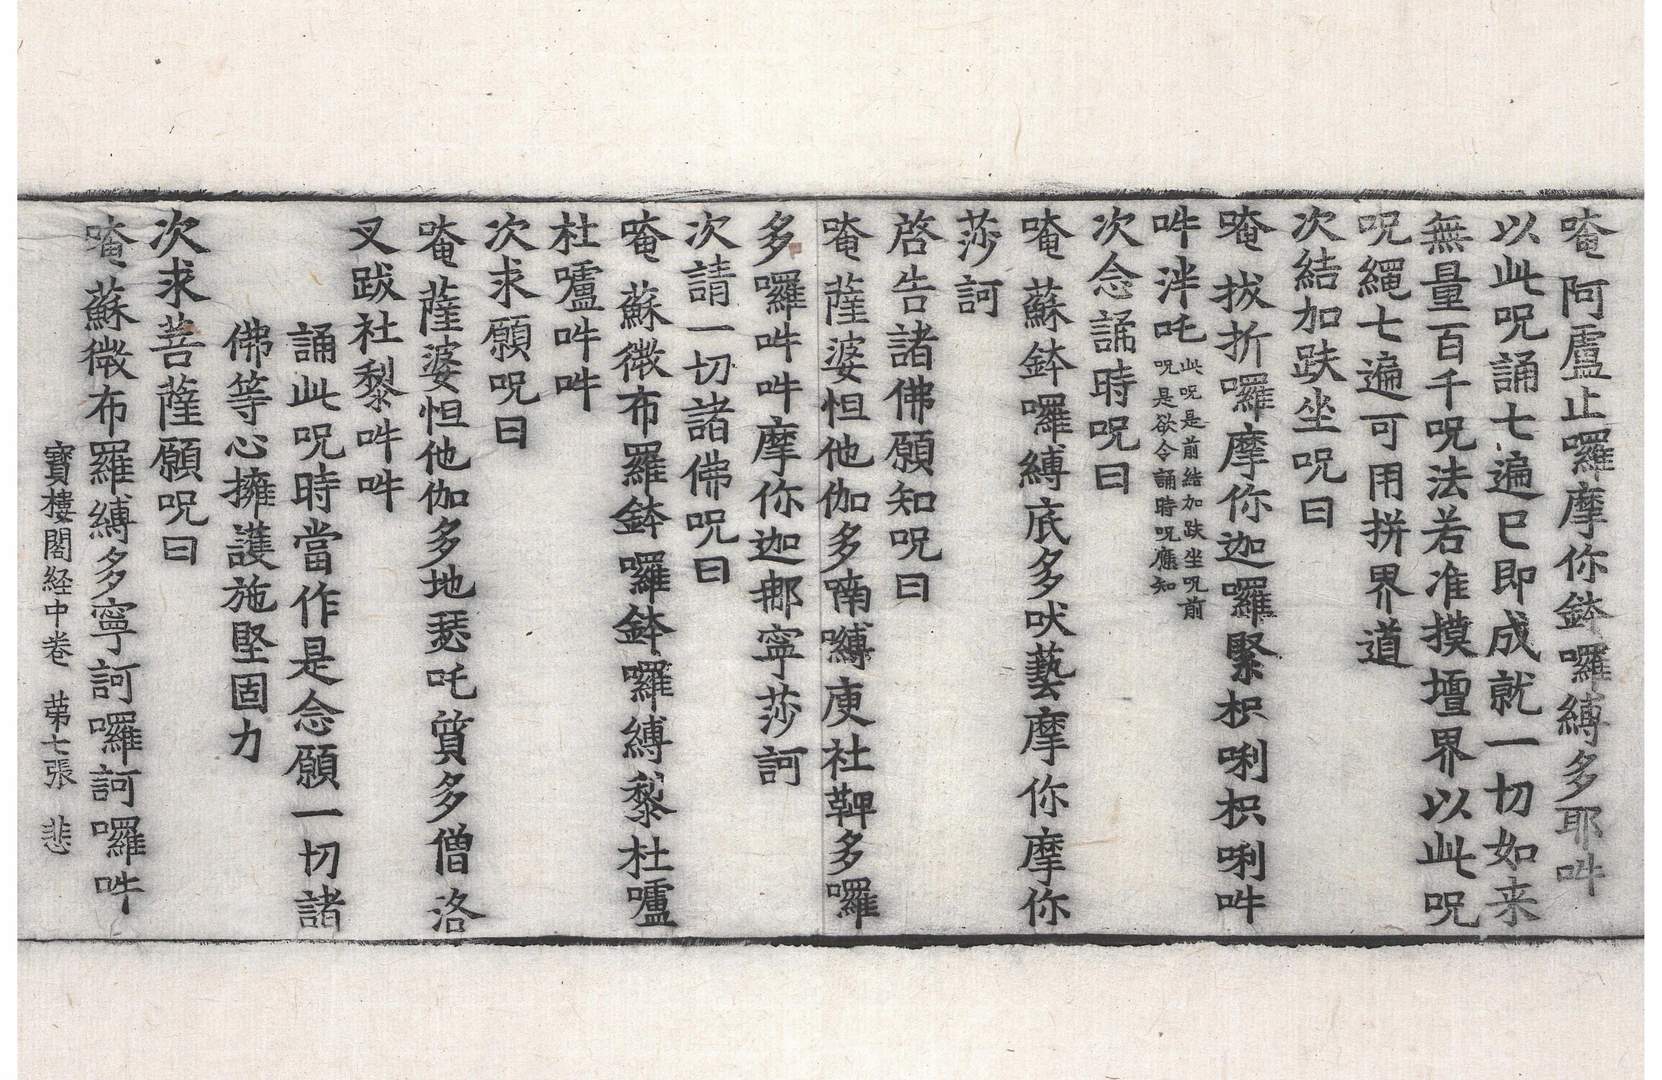 唵 阿盧止囉摩你鉢囉縛多耶吽
以此呪誦七遍巳即成就一切如来
無量百千呪法若准摸壇界以此呪
呪繩七遍可用拼界道
次結加趺坐呪曰
唵 拔折囉摩你迦囉緊枳唎枳唎吽
吽泮吒此呪是前結加趺坐呪前
呪是欲令誦時呪應知
次念誦時呪曰
唵 蘇鉢囉縛底多吠藝摩你摩你
莎訶
啓告諸佛願知呪曰
唵薩婆怛他伽多喃嚩庾社鞞多囉
多囉吽吽摩你迦郍寧莎訶
次請一切諸佛呪曰
唵 蘇微布羅鉢囉鉢囉縛黎杜嚧
杜嚧吽吽
次求願呪曰
唵 薩婆怛他伽多地瑟吒質多僧洛
叉跋社黎吽吽
誦此呪時當作是念願一切諸
佛等心擁護施堅固力
次求菩薩願呪曰
唵 蘇微布羅縛多寧訶囉訶囉吽
寶樓閣経中卷 苐七張 悲